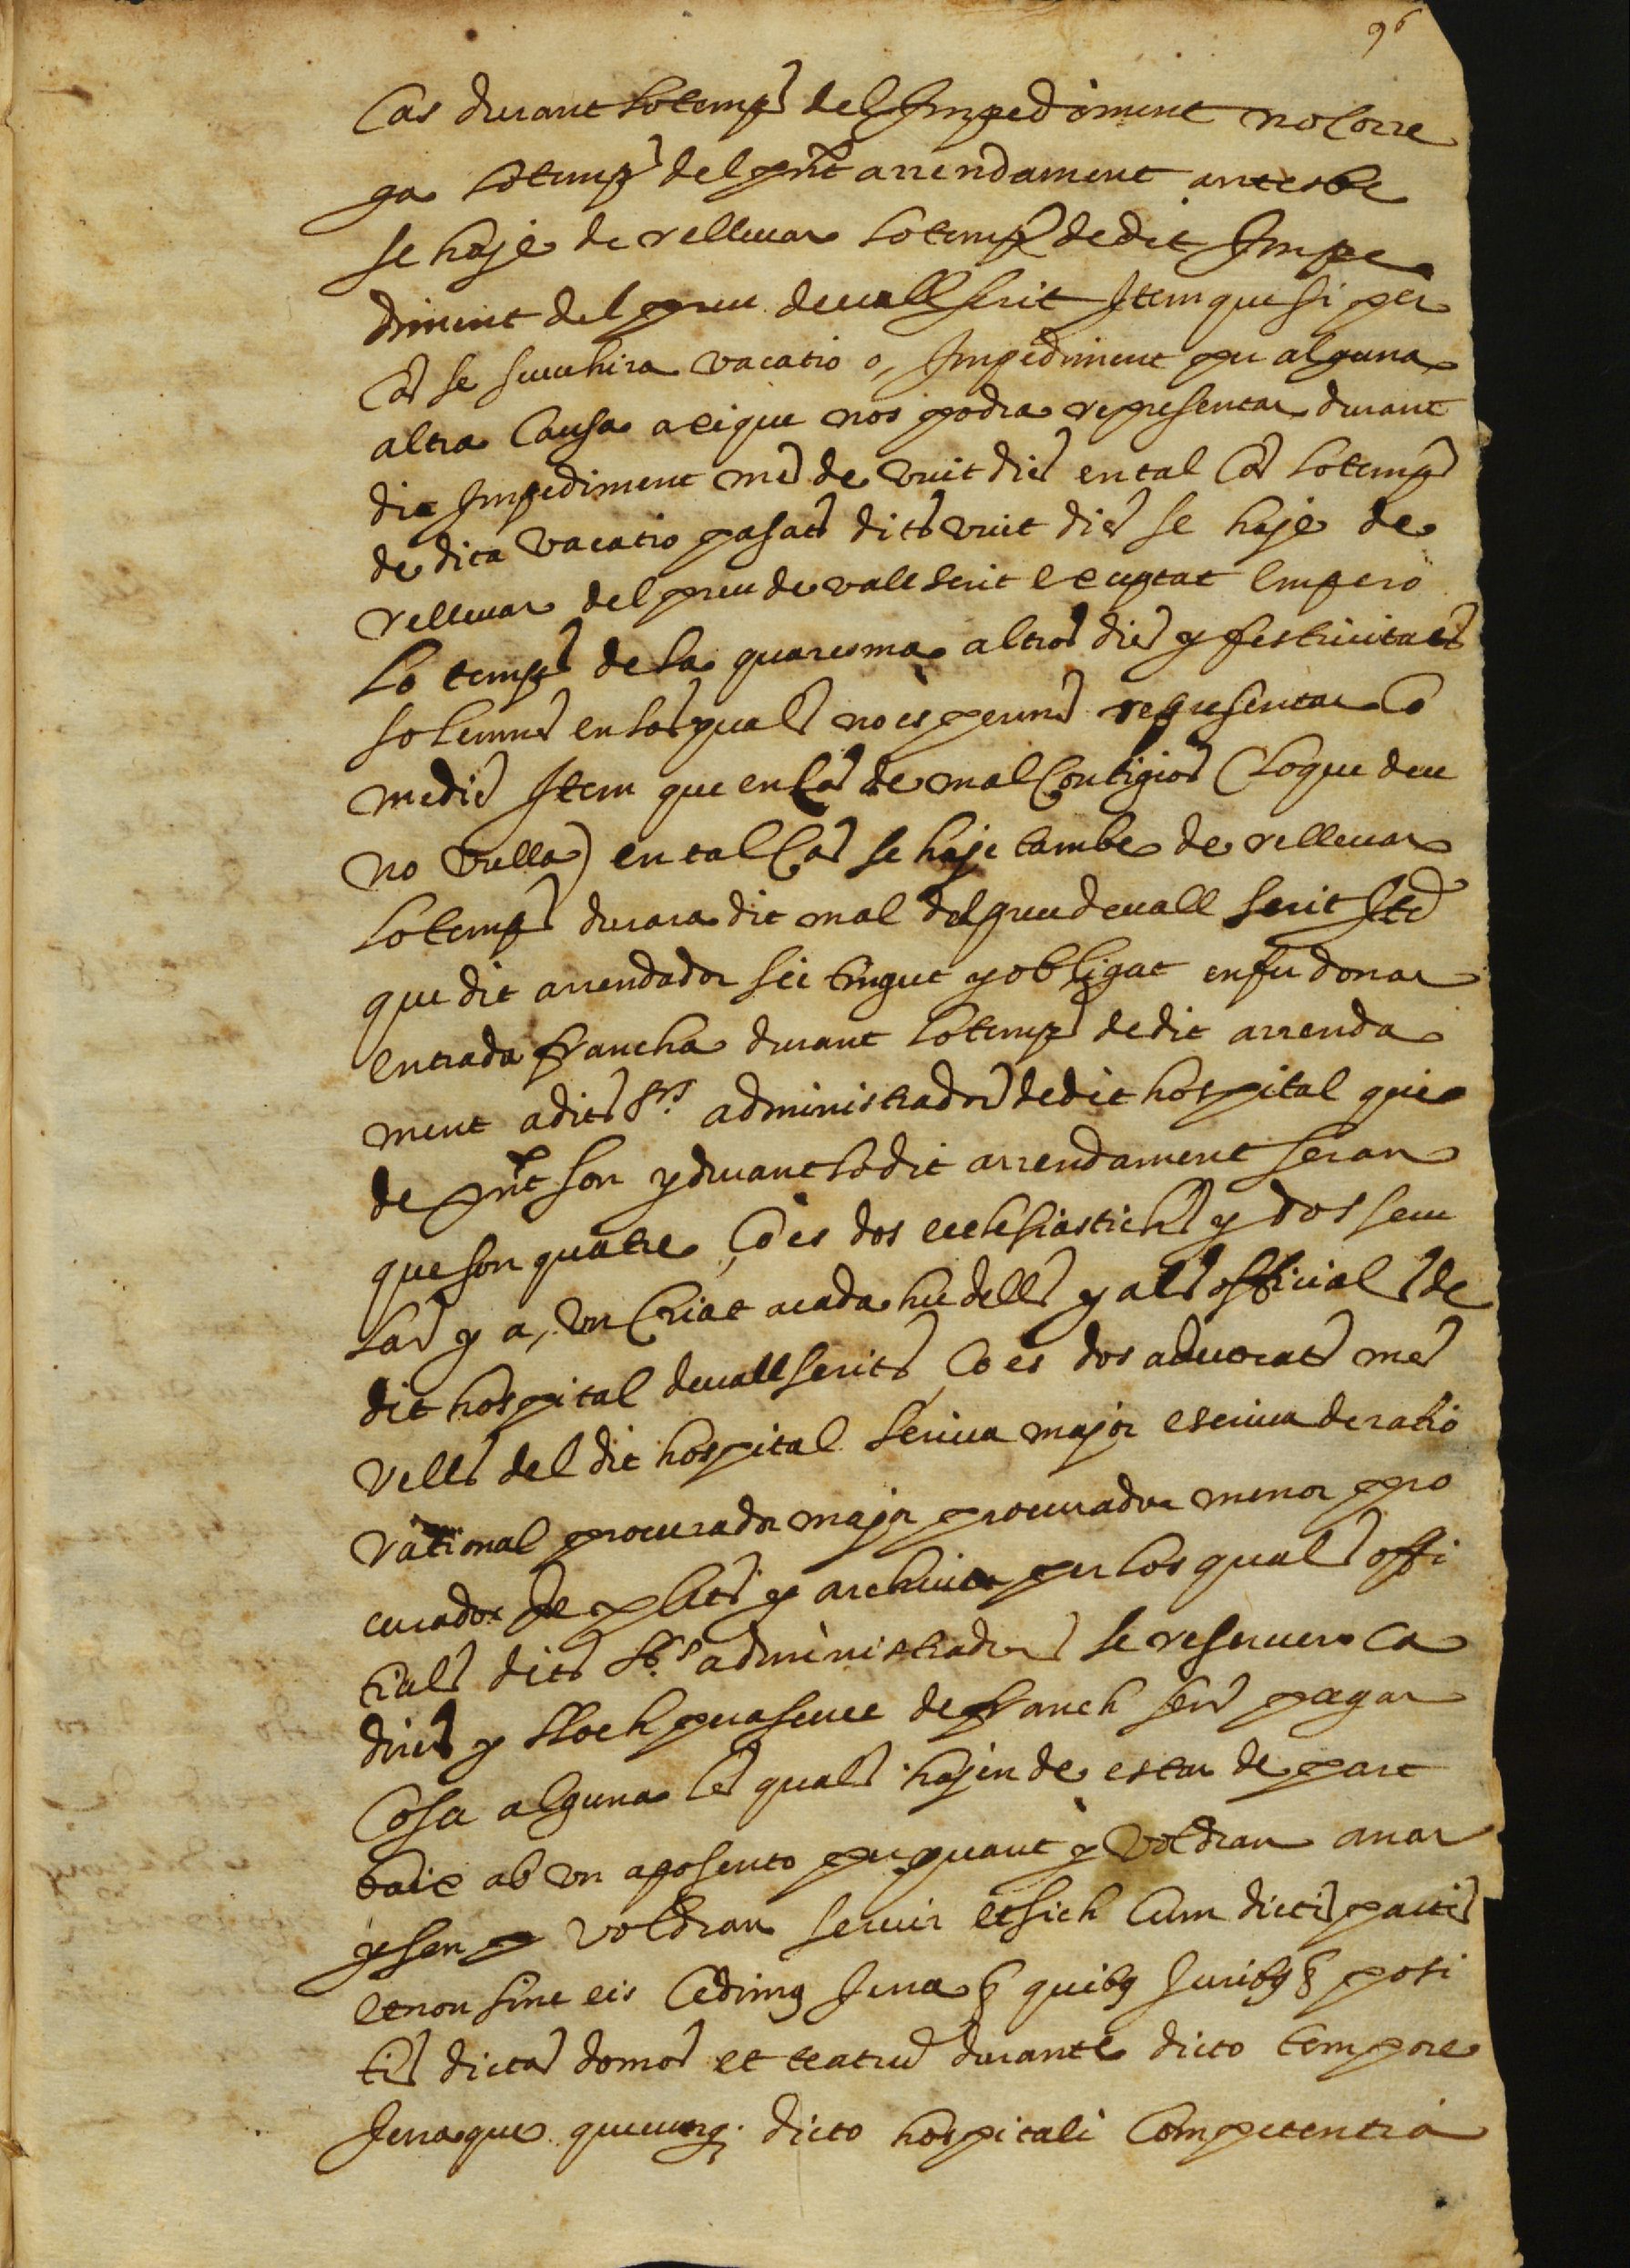 96
Cas durant lo temps del Impediment no corre
ga lo temps del pnt arrendament antes be
se haje de rellevar lo temps de dit Impe
diment del preu devall scrit Item que si per
cas se succuhira vacatio o, Impediment per alguna
altra causa axi que nos podra representar durant
dit Impediment mes de vuit dies en tal cas lo temps
de dita vacatio pasats dits vuit dies se haje de
rellevar del preu devall scrit exceptat empero
lo temps de la quaresma altros dies y festivitats
solemnes en los quals no es permes representar co
medies Item que en cas de mal contigios (lo que deu
no vulla) en tal cas se haje tambe de rellevar
lo temps durara dit mal del preu devall scrit Itē
que dit arrendador sie tingut y obligat en fer donar
entrada francha durant lo temps de dit arrenda
ment a dits Srs. administradors de dit hospital que
de pnt son y durant lo dit arrendament seran
que son quatre, ço es dos ecclesiastichs y dos secu
lars y a, un criat a cada hu dells y als officials de
dit hospital devall scrits ço es dos advocats mes
vells del dit hospital scriva major escriva de ratio
rational procurador major procurador menor pro
curador de plets y archiver per los quals offi
cials dits Srs administradors se reserven ca
dires y lloch per aseure de franch sens pagar
cosa alguna les quals hajen de estar de part
baix ab un aposento per quant y voldran anar
y sen voldran servir et sich cum dictis pactis
et non sine eis cedimus Jura § quibus Juribus § posi
tis dictas domos et teatrū durante dicto tempore
Juraque quecunq. dicto hospitali competentia